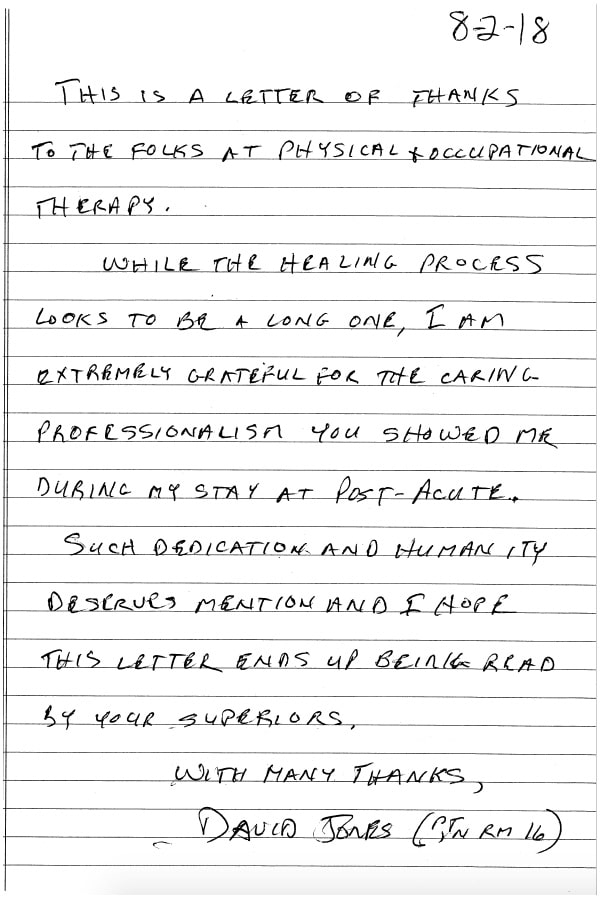 8-2-18
THIS IS A LETTER OF THANKS
TO THE FOLKS AT PHYSICAL + OCCUPATIONAL
THERAPY.
WHILE THE HEALING PROCESS
LOOKS TO BE A LONG ONE, I AM
EXTREMELY GRATEFUL FOR THE CARING
PROFESSIONALISM YOU SHOWED ME
DURING MY STAY AT POST-ACUTE.
SUCH DEDICATION AND HUMANITY
DESERVES MENTION AND I HOPE
THIS LETTER ENDS UP BEING READ
BY YOUR SUPERIORS.
WITH MANY THANKS,
DAVID JONES ( RM 16)